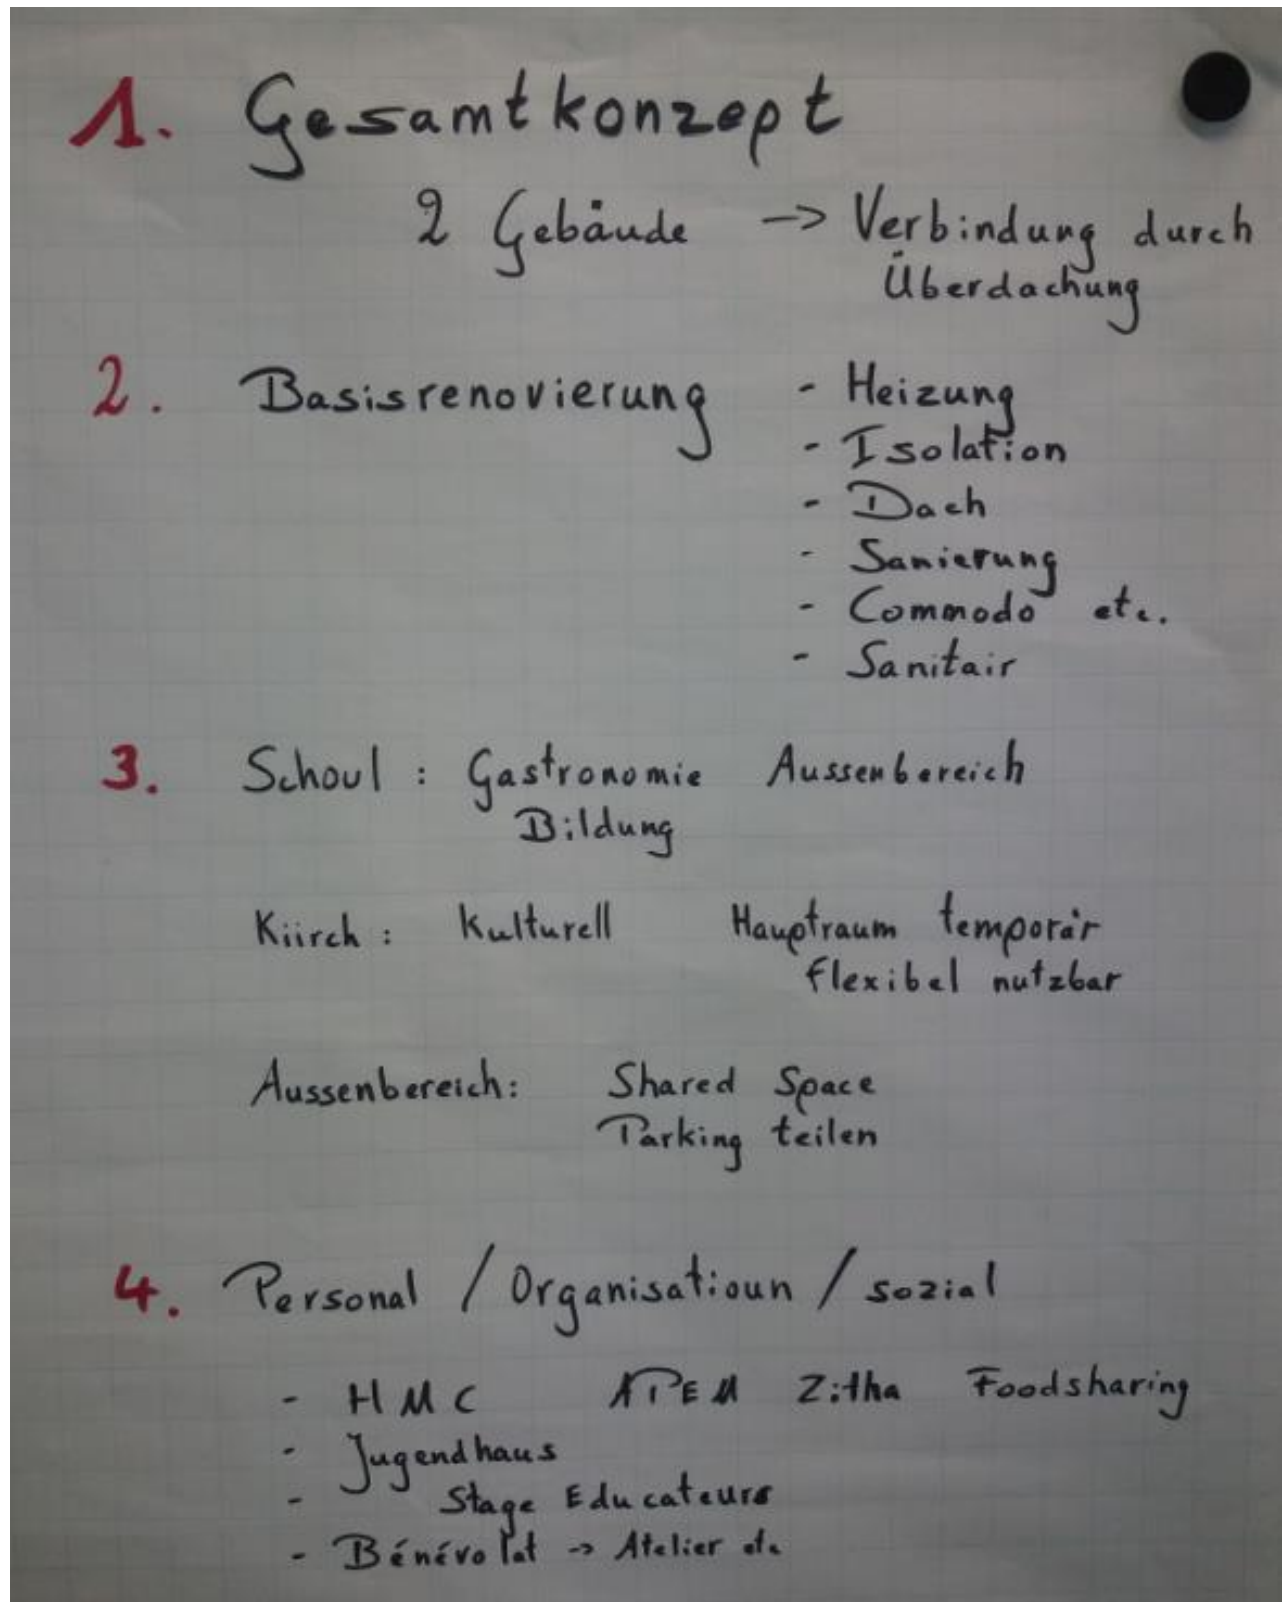 1. Gesamtkonzept
2 Gebäude -> Verbindung durch
Überdachung
2. Basisrenovierung - Heizung
- Isolation
- Dach
- Sanierung
- Commodo etc.
- Sanitair
3. Schoul : Gastronomie Aussenbereich
Bildung
Kiirch : Kulturell Hauptraum temporär
flexibel nutzbar
Aussenbereich: Shared Space
Parking teilen
4. Personal / Organisatioun / sozial
- HMC APEM Zitha Foodsharing
- Jugendhaus
- Stage Educateurs
- Bénévolat -> Atelier etc